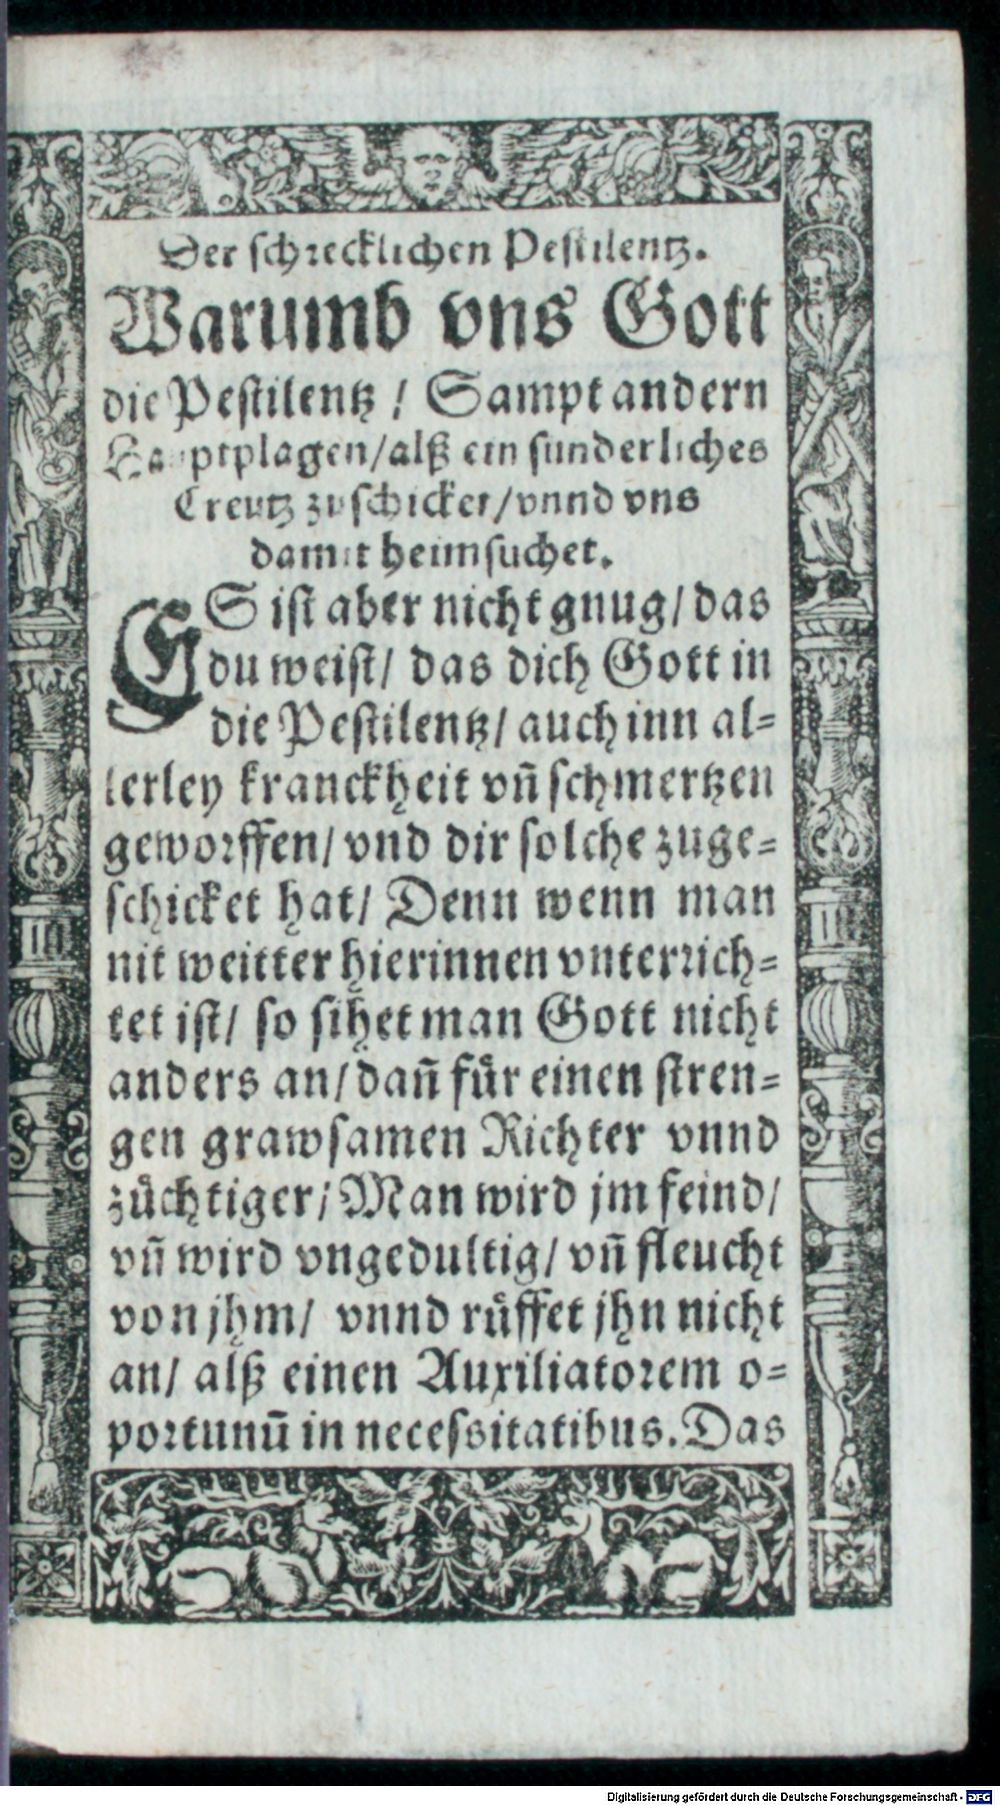 Der schrecklichen Pestilentz.
Warumb vns Gott
die Pestilentz / Sampt andern
Hauptplagen / alß ein sunderliches
Creutz zuschicket / vnnd vns
damit heimsuchet.
ES ist aber nicht gnug / das
du weist / das dich Gott in
die Pestilentz / auch inn al⸗
lerley kranckheit vñ schmertzen
geworffen / vnd dir solche zuge⸗
schicket hat / Denn wenn man
nit weitter hierinnen vnterrich⸗
tet ist / so sihet man Gott nicht
anders an / dañ fuͤr einen stren⸗
gen grawsamen Richter vnnd
zuͤchtiger / Man wird jm feind /
vñ wird vngedultig / vñ fleucht
von jhm / vnnd ruͤffet jhn nicht
an / alß einen Auxiliatorem o⸗
portunū in necessitatibus. Das
Digitalisierung gefördert durch die Deutsche Forschungsgemeinschaft - DFG